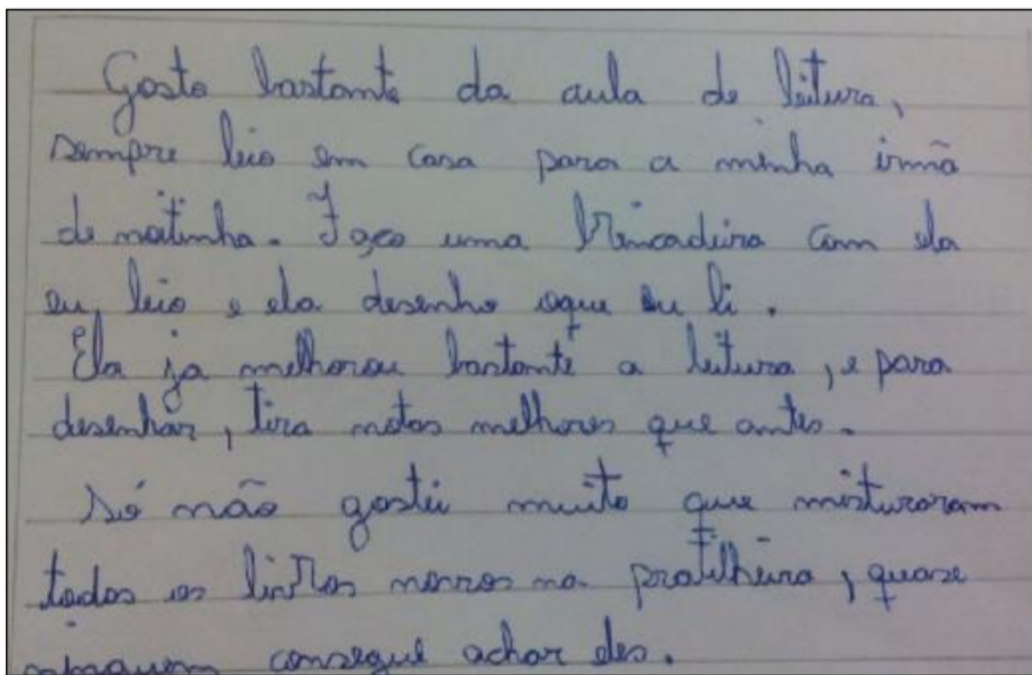 Gosto bastante da aula de leitura,
sempre leio em casa para a minha irmã
de matinha. Faço uma brincadeira com ela
eu leio e ela desenha oque eu li.
Ela ja melhorou bastante a leitura, e para
desenhar, tira notas melhores que antes.
Só não gostei muito que misturaram
todos os livros nossos na pratilheira, quase
ninguem consegue achar eles.